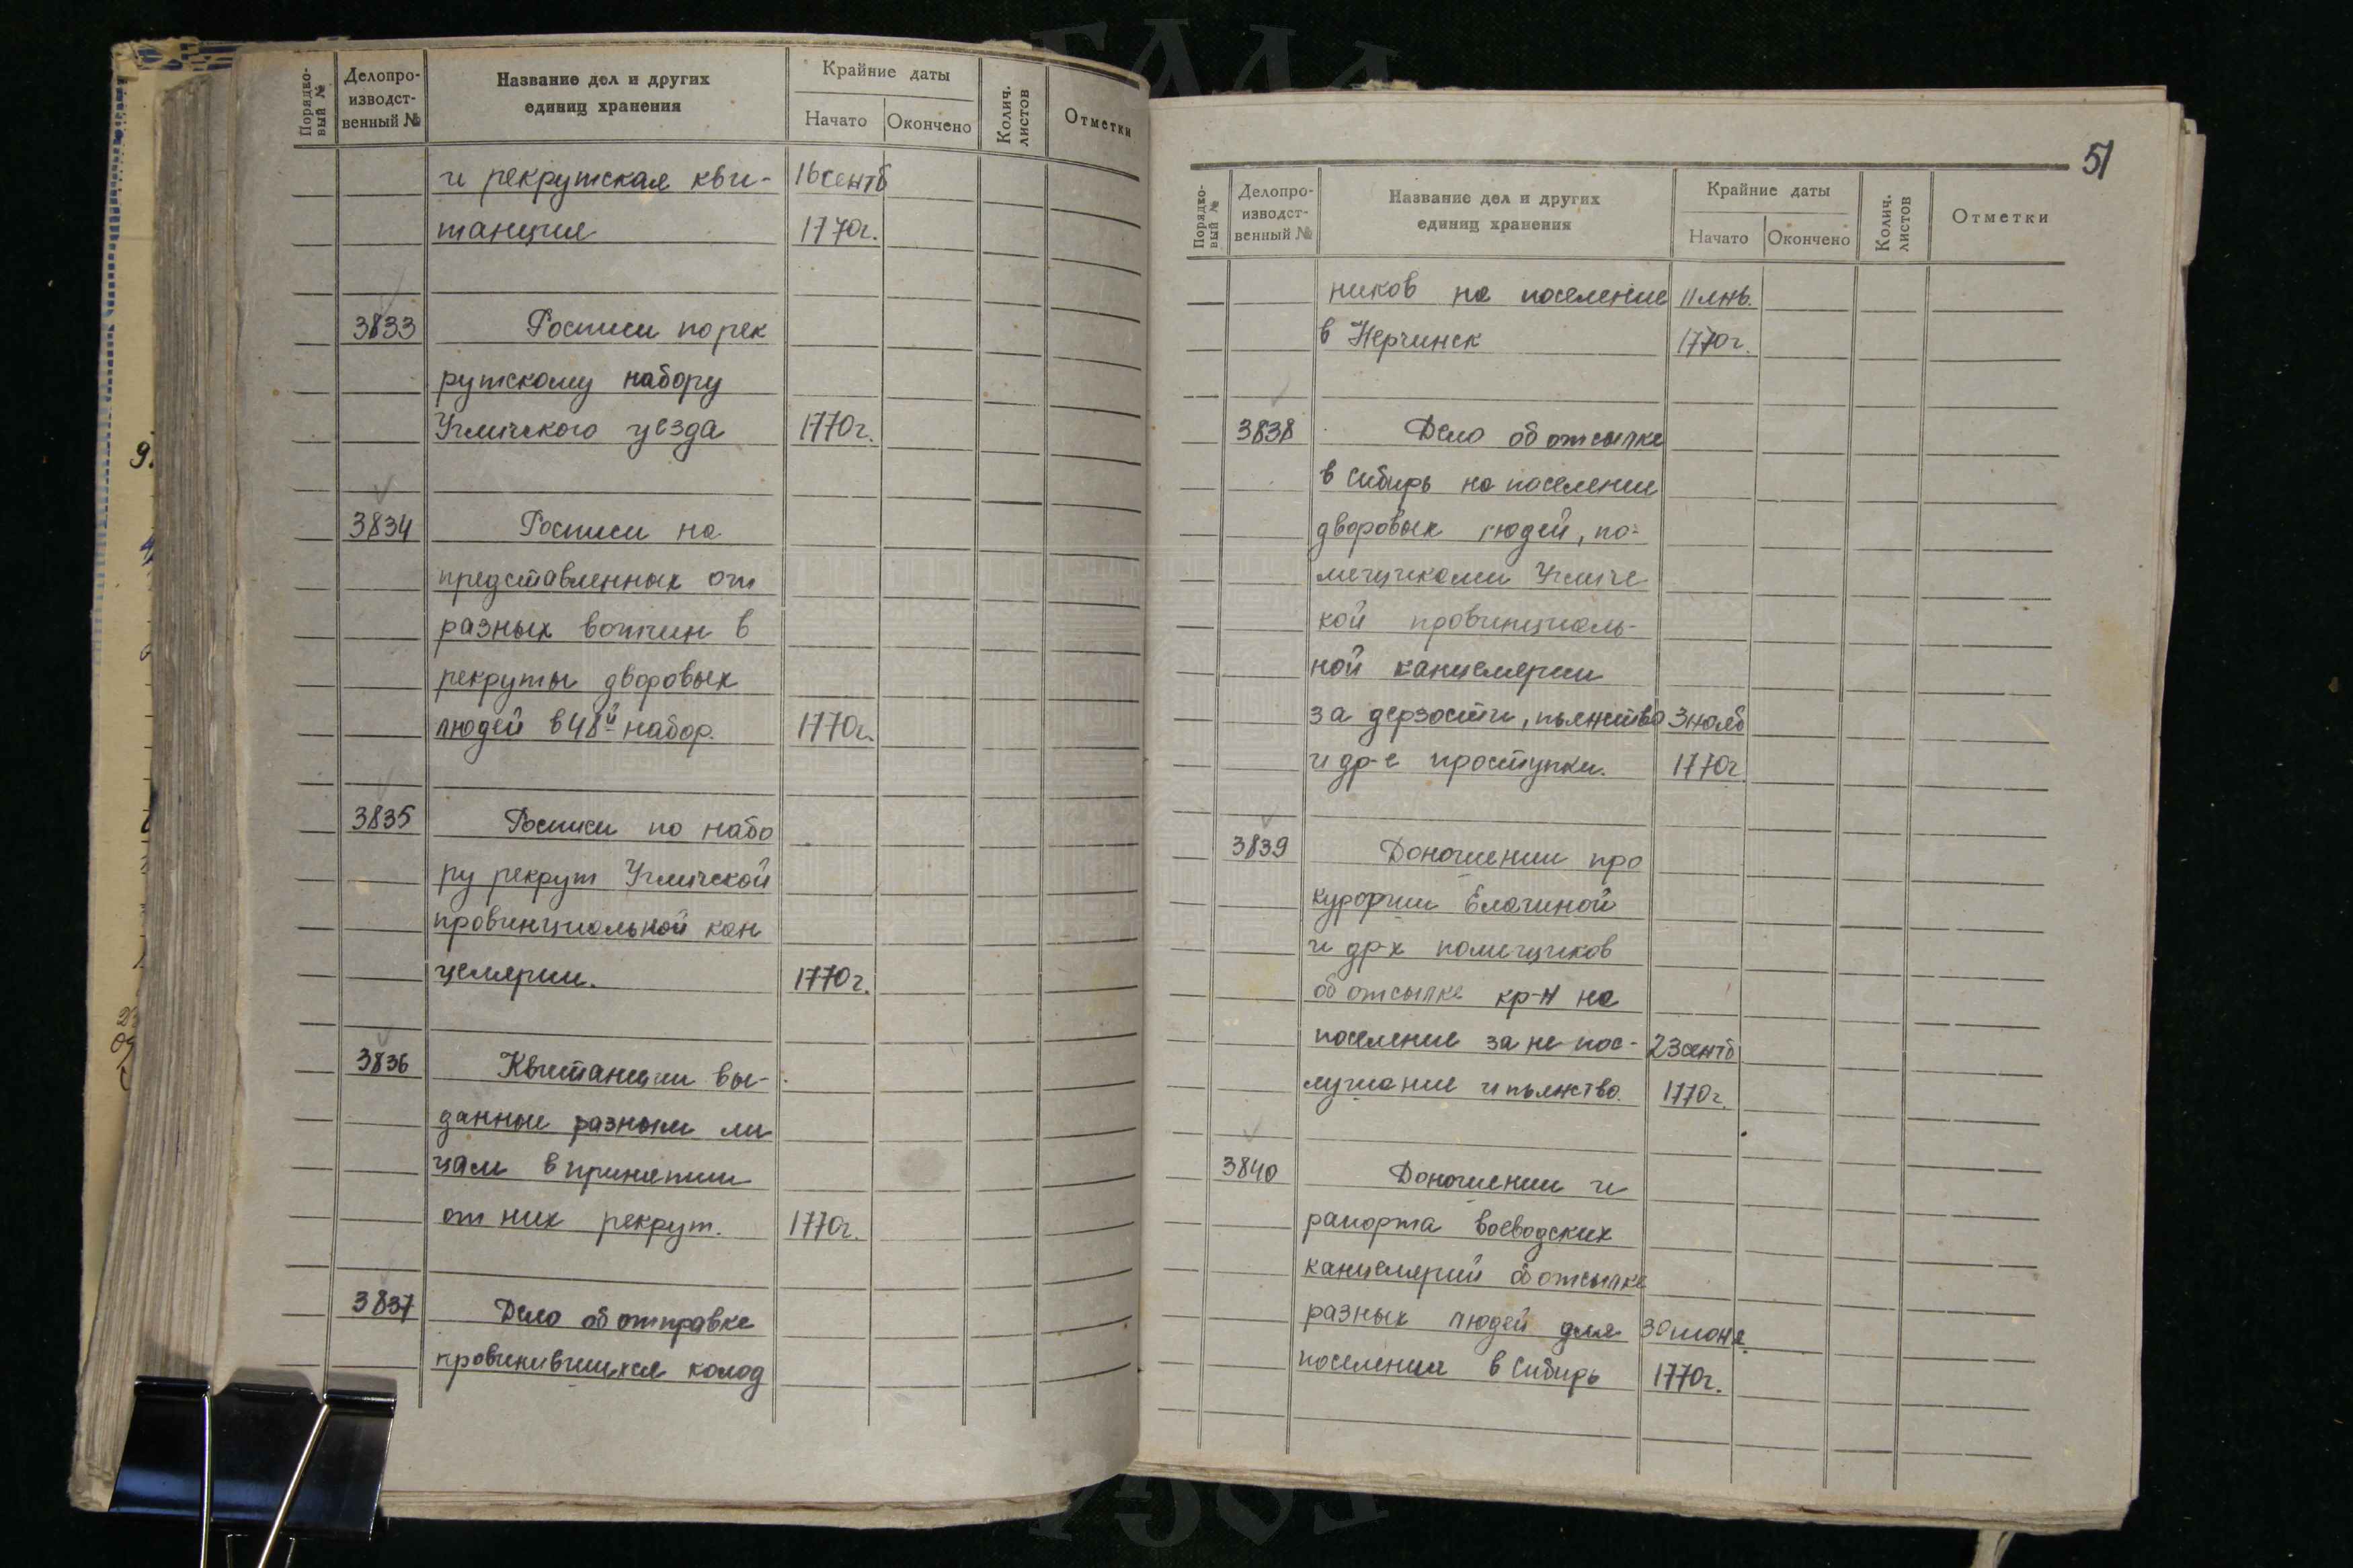 Порядко-
вый №
Делопро-
изводст-
венный №
Название дел и других
единиц хранения
Крайние даты
Начато
Окончено
Колич.
листов
Отметки
и рекрутская кви- 16 сентб
танция 1770г.
3833 Росписи по рек
рутскому набору
Угличского уезда 1770г.
3834 Росписи на
представленных от
разных вотчин в
рекруты дворовых
людей в 48й набор. 1770г.
3835 Росписи по набо
ру рекрут Угличской
провинциальной кан
целярии. 1770г.
3836 Квитанции вы-
данные разным ли
цам в принятии
от них рекрут. 1770г.
3837 Дело об отправке
провинившихся колод
51
Порядко-
вый №
Делопро-
изводст-
венный №
Название дел и других
единиц хранения
Крайние даты
Начато
Окончено
Колич.
листов
Отметки
ников на поселение 11 янв.
в Нерчинск 1770г.
3838 Дело об отсылке
в Сибирь на поселение
дворовых людей, по-
мещиками Угличс
кой провинциаль-
ной канцелярии
за дерзости, пьянство 3 нояб
и др-е проступки. 1770г
3839 Доношении про
курорши Елагиной
и др-х помещиков
об отсылке кр-н на
поселение за не пос- 23 сентб
лушание и пьянство. 1770г.
3840 Доношении и
рапорта воеводских
канцелярий об отсылке
разных людей для 30 июня
поселения в Сибирь 1770г.